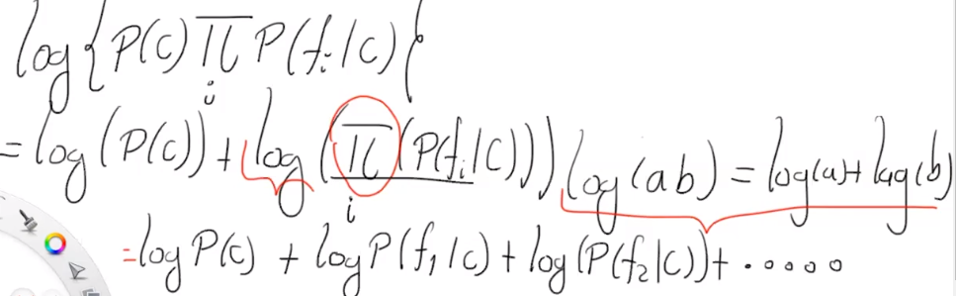 log{P(c) π P(fᵢ/c)}
i
= log(P(c)) + log(π(P(fᵢ/C))) log(ab) = log(a)+log(b)
i
= log P(c) + log P(f₁/c) + log(P(f₂|c)) + .....